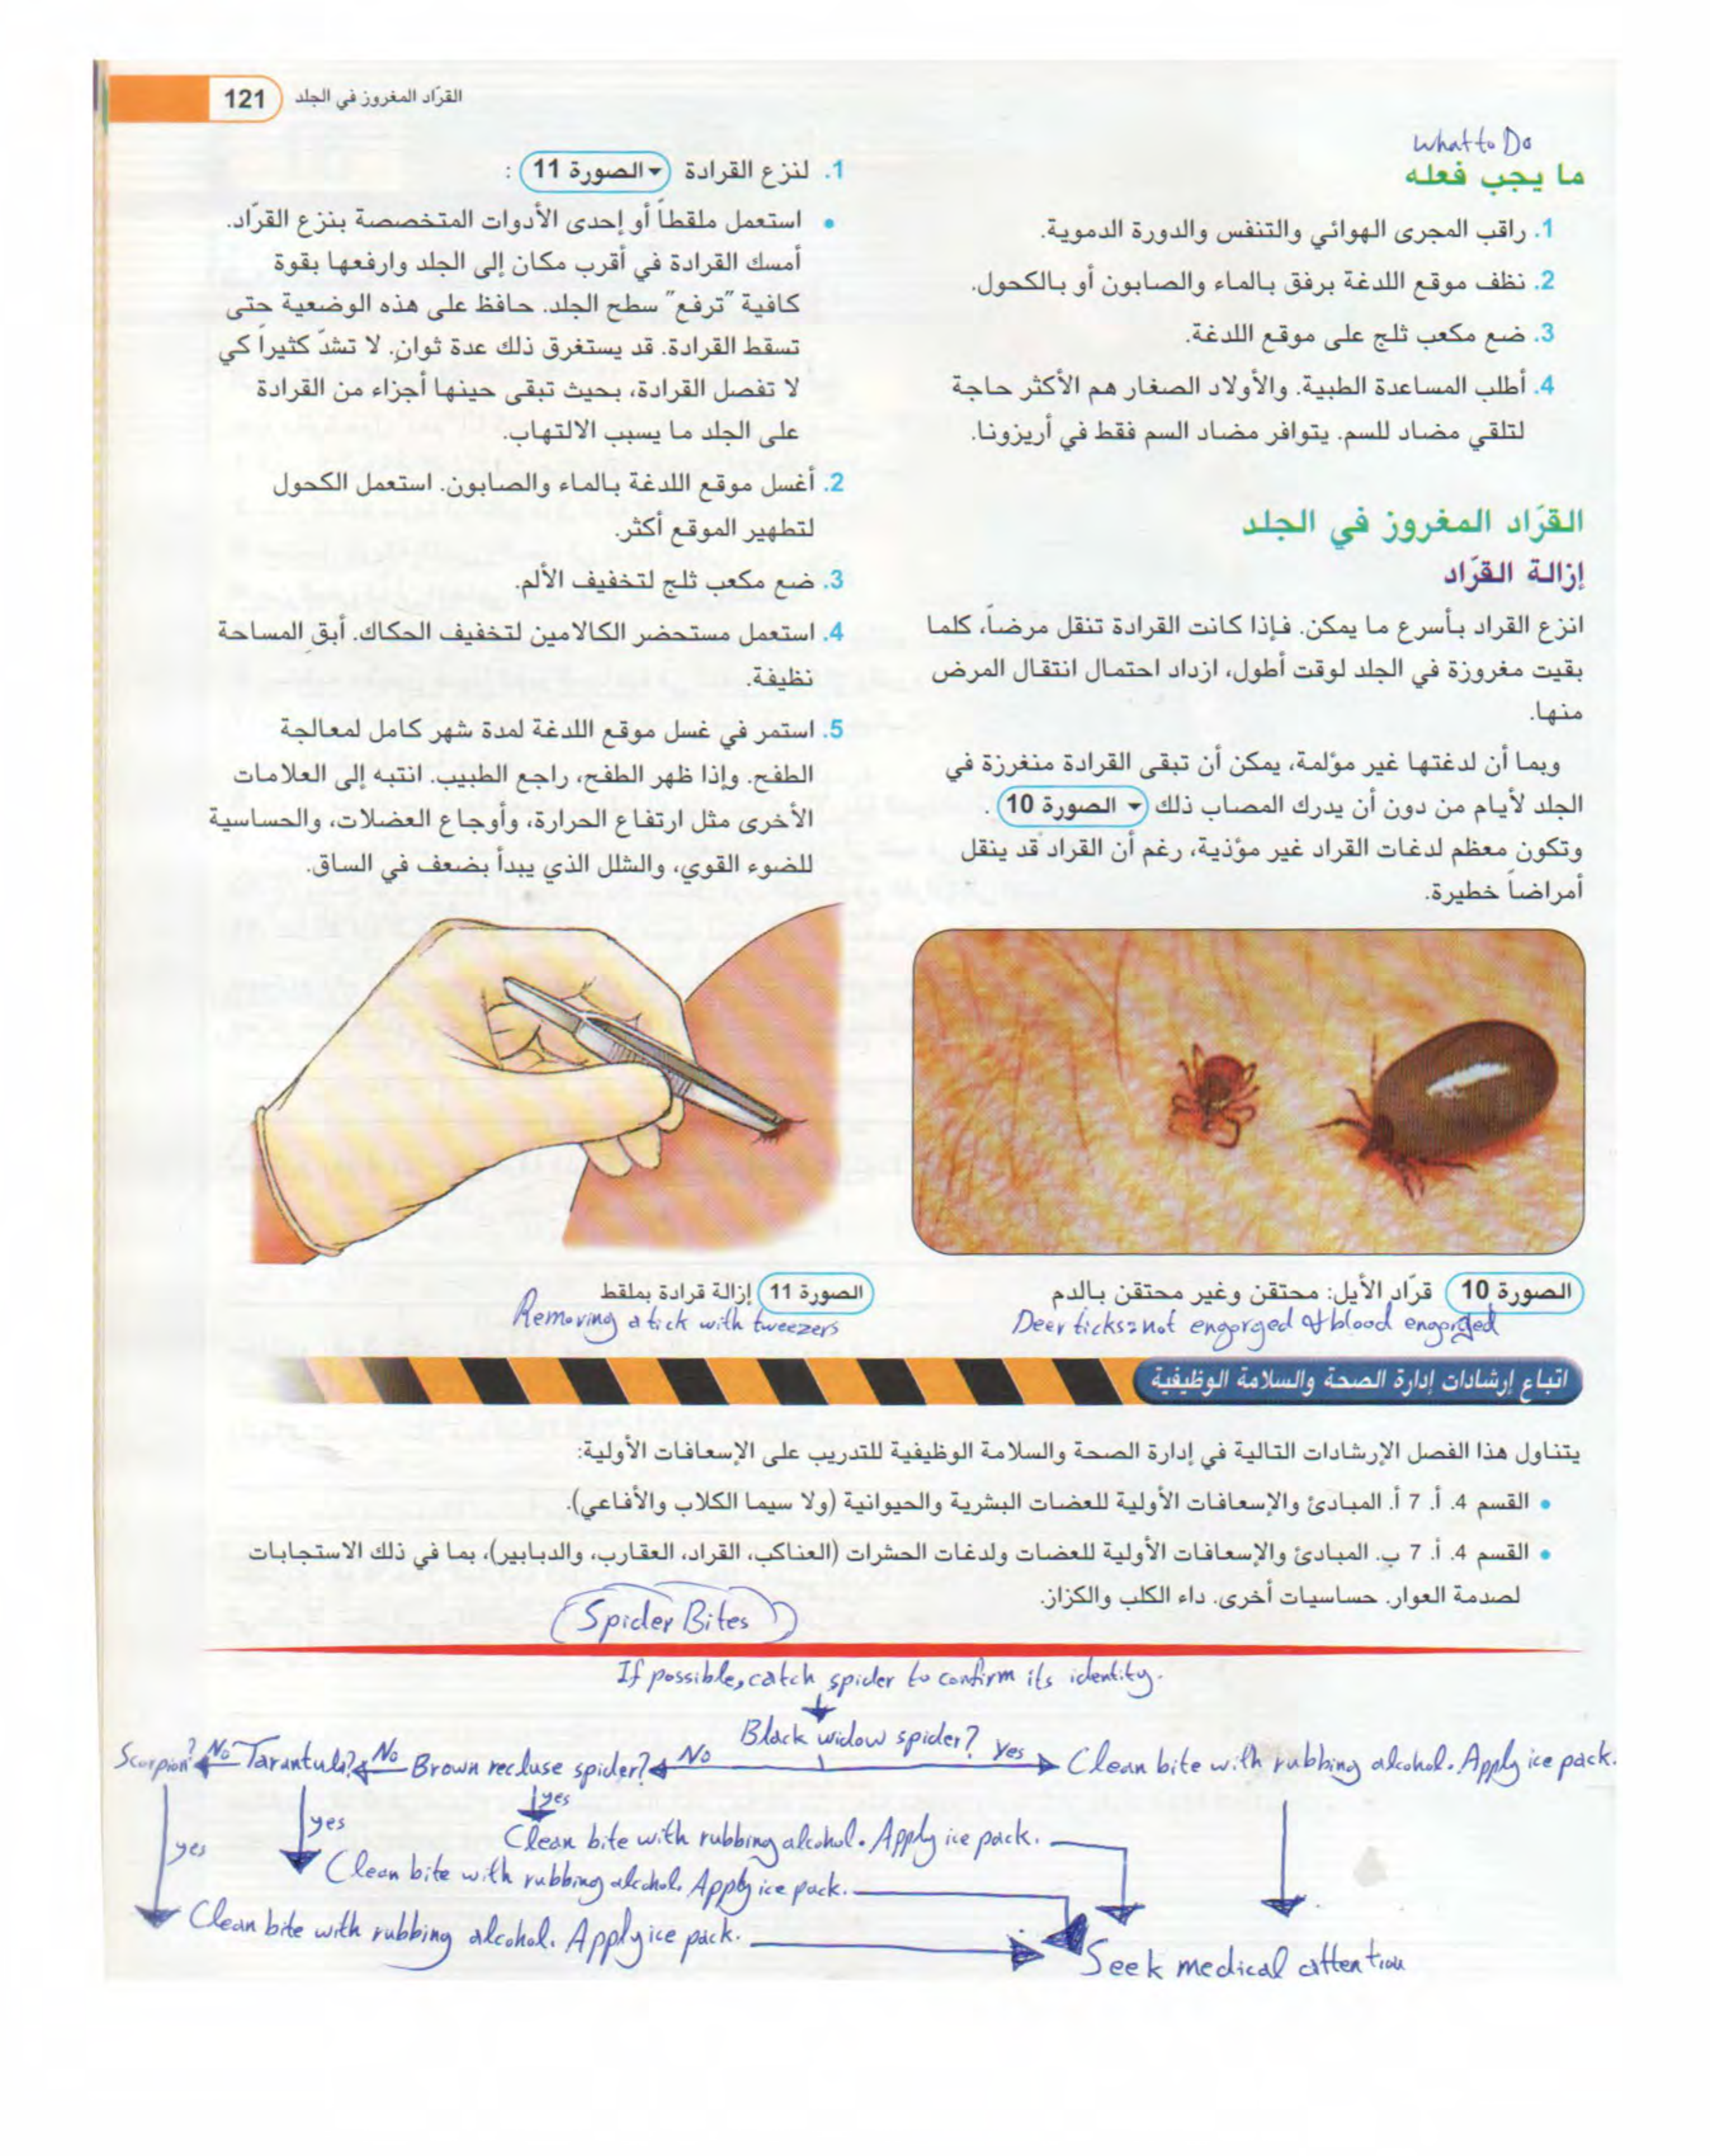 121 القرّاد المغروز في الجلد
What to Do
ما يجب فعله
1. راقب المجرى الهوائي والتنفس والدورة الدموية.
2. نظف موقع اللدغة برفق بالماء والصابون أو بالكحول.
3. ضع مكعب ثلج على موقع اللدغة.
4. أطلب المساعدة الطبية. والأولاد الصغار هم الأكثر حاجة
لتلقي مضاد للسم. يتوافر مضاد السم فقط في أريزونا.
القرّاد المغروز في الجلد
إزالة القرّاد
انزع القراد بأسرع ما يمكن. فإذا كانت القرادة تنقل مرضاً، كلما
بقيت مغروزة في الجلد لوقت أطول، ازداد احتمال انتقال المرض
منها.
وبما أن لدغتها غير مؤلمة، يمكن أن تبقى القرادة منغرزة في
الجلد لأيام من دون أن يدرك المصاب ذلك ▾ الصورة 10 .
وتكون معظم لدغات القراد غير مؤذية، رغم أن القراد قد ينقل
أمراضاً خطيرة.
1. لنزع القرادة ▾ الصورة 11 :
• استعمل ملقطاً أو إحدى الأدوات المتخصصة بنزع القرّاد.
أمسك القرادة في أقرب مكان إلى الجلد وارفعها بقوة
كافية "ترفع" سطح الجلد. حافظ على هذه الوضعية حتى
تسقط القرادة. قد يستغرق ذلك عدة ثوانٍ. لا تشدّ كثيراً كي
لا تفصل القرادة، بحيث تبقى حينها أجزاء من القرادة
على الجلد ما يسبب الالتهاب.
2. أغسل موقع اللدغة بالماء والصابون. استعمل الكحول
لتطهير الموقع أكثر.
3. ضع مكعب ثلج لتخفيف الألم.
4. استعمل مستحضر الكالامين لتخفيف الحكاك. أبقِ المساحة
نظيفة.
5. استمر في غسل موقع اللدغة لمدة شهر كامل لمعالجة
الطفح. وإذا ظهر الطفح، راجع الطبيب. انتبه إلى العلامات
الأخرى مثل ارتفاع الحرارة، وأوجاع العضلات، والحساسية
للضوء القوي، والشلل الذي يبدأ بضعف في الساق.
الصورة 10 قرّاد الأيل: محتقن وغير محتقن بالدم
Deer ticks: not engorged & blood engorged
الصورة 11 إزالة قرادة بملقط
Removing a tick with tweezers
اتباع إرشادات إدارة الصحة والسلامة الوظيفية
يتناول هذا الفصل الإرشادات التالية في إدارة الصحة والسلامة الوظيفية للتدريب على الإسعافات الأولية:
• القسم 4. أ. 7 أ. المبادئ والإسعافات الأولية للعضات البشرية والحيوانية (ولا سيما الكلاب والأفاعي).
• القسم 4. أ. 7 ب. المبادئ والإسعافات الأولية للعضات ولدغات الحشرات (العناكب، القراد، العقارب، والدبابير)، بما في ذلك الاستجابات
لصدمة العوار. حساسيات أخرى. داء الكلب والكزاز.
Spider Bites
If possible, catch spider to confirm its identity.
Black widow spider?
Yes
Clean bite with rubbing alcohol. Apply ice pack.
No
Brown recluse spider?
No
Tarantula?
No
Scorpion?
yes
Clean bite with rubbing alcohol. Apply ice pack.
yes
Clean bite with rubbing alcohol. Apply ice pack.
yes
Clean bite with rubbing alcohol. Apply ice pack.
Seek medical attention